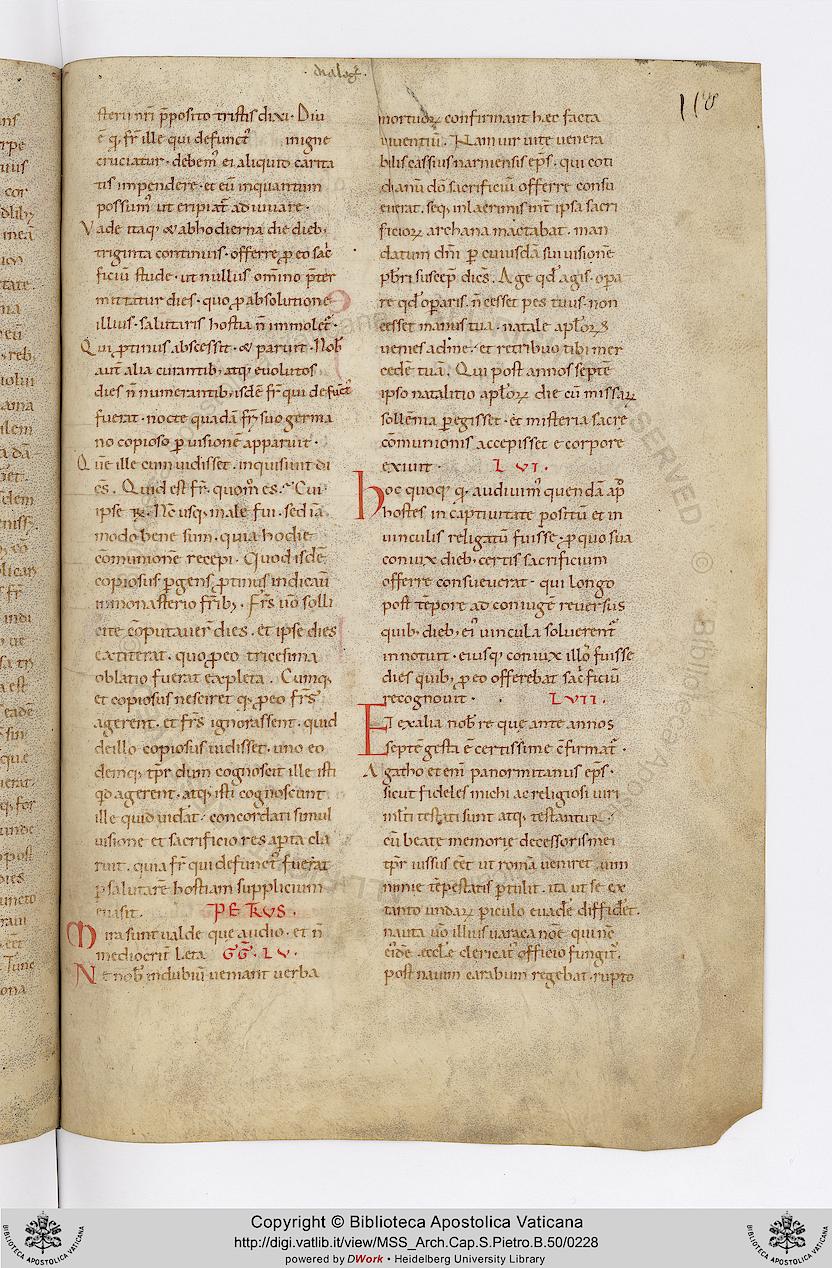 dialog̅.
110
sterii nr̅i p̅posito tristis dixi. Diu
e̅ q. fr̅ ille qui defunct᷒ inigne
cruciatur. debem᷒ ei aliquid carita
tis impendere. et eu̅ inquantum
possum᷒ ut eripiat᷒ adiuuare.
Vade itaq; & ab hodierna die dieb;
triginta continuis. offerre p eo sac̅
ficiu̅ stude. ut nullus om̅ino p̅ter
mittatur dies. quo p absolutione
illius. salutaris hostia n̅ immolet᷒.
Qui p̱tinus abscessit. & paruit. Nob̅
aut̅ alia curantib; atq; euolutos
dies n̅ numerantib; isde̅ fr̅ qui defu̅ct᷒
fuerat. nocte quada̅ fr̅i suo germa
no copioso p uisione̅ apparuit.
Que̅ ille cum uidisset. inquisiuit di
ce̅s. Quid est fr̅. quom̅ es. Cui
ipse r̅. Nc̅ usq; male fui. sed ia̅
modo bene sum. quia hodie
co̅munione̅ recepi. Quod isde̅
copiosus pgens p̱tinus indicauit
in monasterio fr̅ib;. Fr̅s u̅o solli
cite co̅putauer̅ dies. et ipse dies
extiterat. quo p eo tricesima
oblatio fuerat expleta. Cumq;
et copiosus nesciret q; p eo fr̅s
agerent. et fr̅s ignorassent. quid
de illo copiosus uidisset. uno eo
demq; tp̅r dum cognoscit ille isti
qd̅ agerent. atq; isti cognoscunt
ille quid uidat̅. concordati simul
uisione et sacrificio res apta cla
ruit. quia fr̅ qui defunct᷒ fuerat
p salutare̅ hostiam supplicium
euasit. PETRVS.
Mira sunt ualde que audio. et n̅
mediocrit̅ leta GG̅. LV.
Ne nob̅ indubiu̅ ueniant uerba
mortuoꝝ confirmant hæc facta
uiuentiu̅. Nam uir uite uenera
bilis cassius narniensis ep̅s. qui coti
dianu̅ do̅ sacrificiu̅ offerre consu
euerat. seq; in lacrimis int̅ ipsa sacri
ficioꝝ archana mactabat. man
datum dn̅i p cuiusda̅ sui uisione̅
pb̅ri suscep̅ dice̅s. Age qd̅ agis. opa
re qd̅ operaris. n̅ cesset pes tuus. non
cesset manus tua. natale ap̅loꝝ
uenies ad me. et retribuo tibi mer
cede̅ tua̅. Qui post annos septe̅
ipso natalitio ap̅loꝝ die cu̅ missaꝝ
solle̅nia pegisset. et misteria sacre
co̅munionis accepisset e corpore
exiuit. LVI.
Hoc quoq; q. audiuim᷒ quenda̅ ap̅
hostes in captiuitate positu̅ et in
uinculis religatu̅ fuisse. p quo sua
coniux dieb; certis sacrificium
offerre consueuerat. qui longo
post te̅pore ad coniuge̅ reuersus
quib; dieb; ei᷒ uincula soluerent᷒
innotuit. eiusq; coniux illos̅ fuisse
dies quib; p eo offerebat sac̅ficiu̅
recognouit. LVII.
Et ex alia nob̅ re que ante annos
septe̅ gesta e̅ certissime c̅firmat᷒.
Agatho et eni̅ panormitanus ep̅s.
sicut fideles michi ac religiosi uiri
ml̅ti testati sunt atq; testantur.
cu̅ beate memorie decessoris mei
tp̅r iussus e̅et ut roma̅ ueniret. uim
nimie te̅pestatis p̱tulit. ita ut se ex
tanto undaꝝ piculo euade̅ diffidet̅.
nauta u̅o illius uaraca no̅e qui nc̅
eide̅ eccl̅e clericat᷒ officio fungit᷒.
post nauim carabum regebat. rupto
Copyright © Biblioteca Apostolica Vaticana
http://digi.vatlib.it/view/MSS_Arch.Cap.S.Pietro.B.50/0228
powered by DWork • Heidelberg University Library